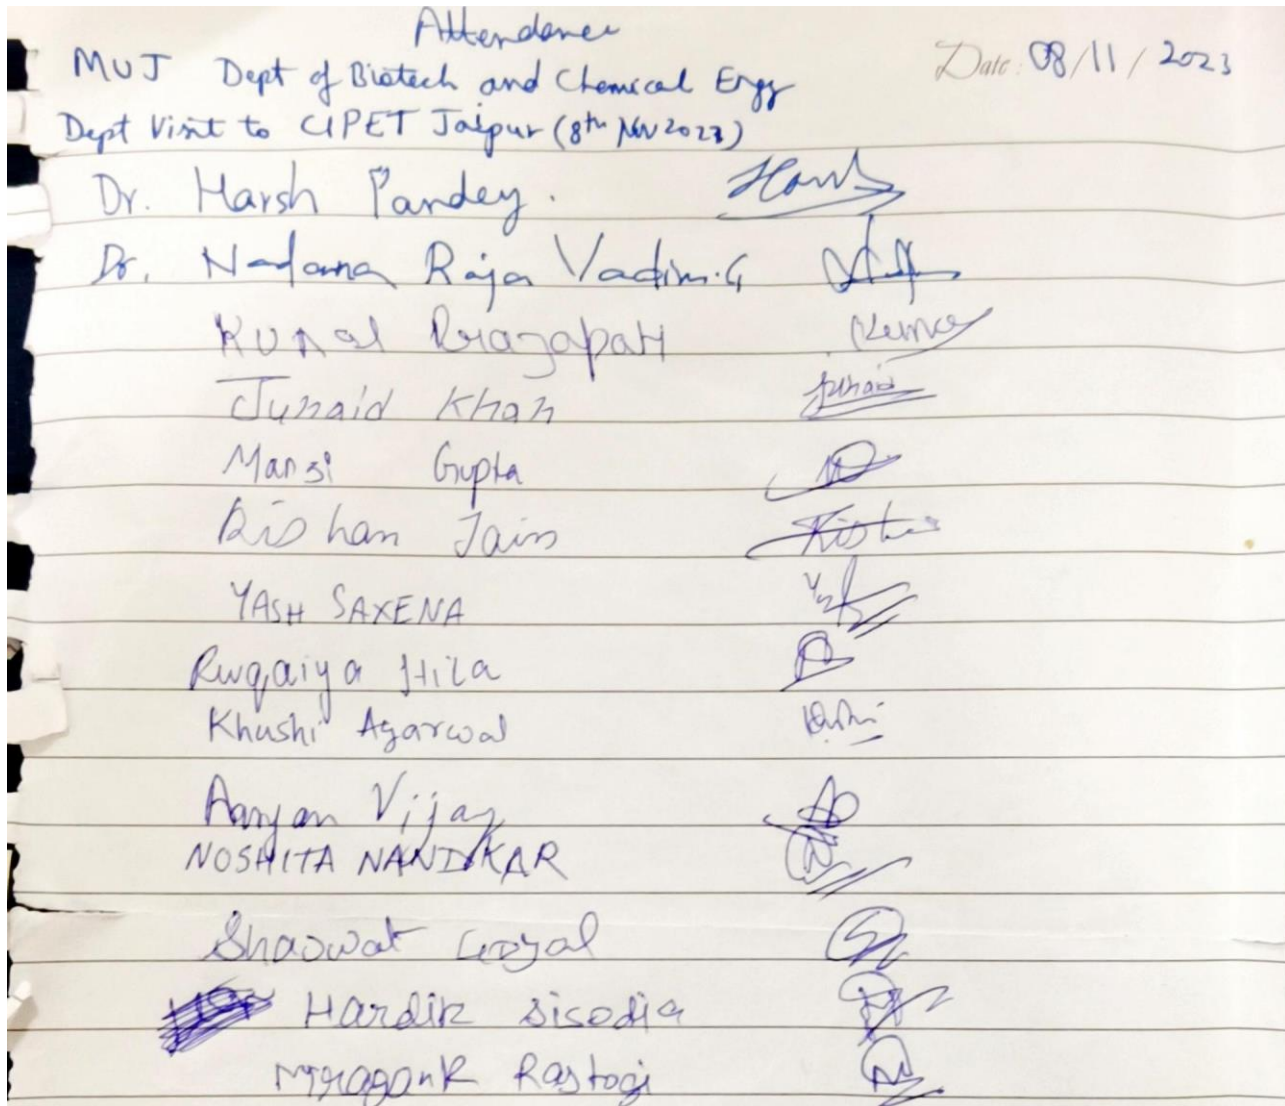 Attendance
Date: 08/11/2023
MUJ Dept of Biotech and Chemical Engg
Dept Visit to CIPET Jaipur (8th Nov 2023)
Dr. Harsh Pandey. Harsh
Dr. Nadana Raja Vadivu.G
Kunal Prajapati Kumar
Junaid Khan Junaid
Mansi Gupta
Rishan Jain
YASH SAXENA Yash
Ruqaiya Hila
Khushi Agarwal Khushi
Aaryan Vijay
NOSHITA NANDKAR
Shaswat Goyal
Hardik Sisodia
Mragank Rastogi